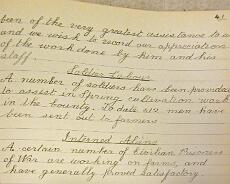 41
been of the very greatest assistance to us
and we wish to record our appreciation
of the work done by him and his
staff.
Soldier Labour
A number of soldiers have been provided
to assist in spring cultivation work
in the County. To date six men have
been sent out to farmers
Interned Aliens
A certain number of Civilian Prisoners
of War are working on farms, and
have generally proved satisfactory.